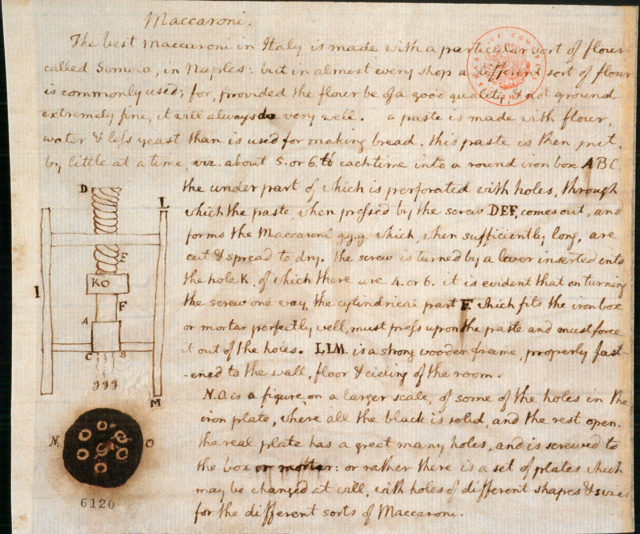 Maccaroni.
The best maccaroni in Italy is made with a particular sort of flour
called Semola, in Naples: but in almost every shop a different sort of flour
is commonly used; for, provided the flour be of a good quality, & not ground
extremely fine, it will always do very well. a paste is made with flour,
water & less yeast than is used for making bread. this paste is then put,
by little at a time, viz. about 5. or 6. ℔ each time into a round iron box ABC.
the under part of which is perforated with holes, through
which the paste, when pressed by the screw DEF, comes out, and
forms the Maccaroni ggg which, when sufficiently long, are
cut & spread to dry. the screw is turned by a lever inserted into
the hole K. of which there are 4. or 6. it is evident that on turning
the screw one way, the cylindrical part F. which fits the iron box
or mortar perfectly well, must press upon the paste and must force
it out of the holes. LLM. is a strong wooden frame, properly fast-
ened to the wall, floor & cieling of the room.
N.O. is a figure, on a larger scale, of some of the holes in the
iron plate, where all the black is solid, and the rest open.
the real plate has a great many holes, and is screwed to
the box or mortar: or rather there is a set of plates which
may be changed at will, with holes of different shapes & sizes
for the different sorts of Maccaroni.
D
L
E
I
KO
F
A
C
B
ggg
M
N.
O
6120